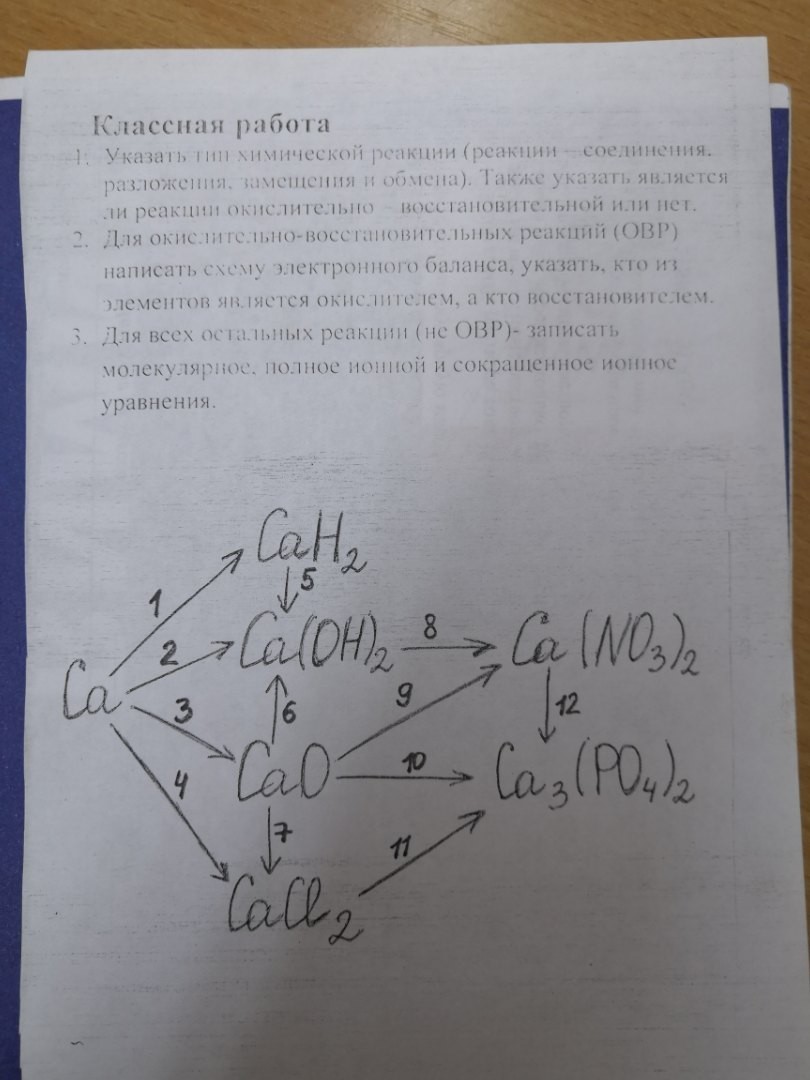 Классная работа
1. Указать тип химической реакции (реакции – соединения,
разложения, замещения и обмена). Также указать является
ли реакции окислительно – восстановительной или нет.
2. Для окислительно-восстановительных реакций (ОВР)
написать схему электронного баланса, указать, кто из
элементов является окислителем, а кто восстановителем.
3. Для всех остальных реакции (не ОВР)- записать
молекулярное, полное ионной и сокращенное ионное
уравнения.
CaH₂
1 5
2 Ca(OH)₂ 8 Ca(NO₃)₂
Ca 3 6 9 12
4 CaO 10 Ca₃(PO₄)₂
7 11
CaCl₂